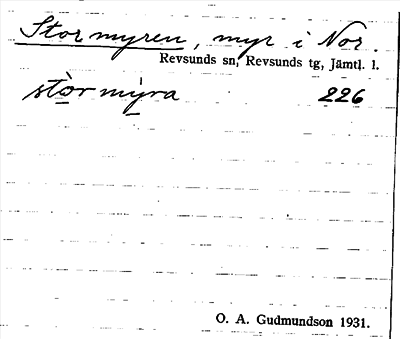 Stormyren, myr i Nor.
Revsunds sn, Revsunds tg, Jämtl. l.
stòrmýra 226
O. A. Gudmundson 1931.